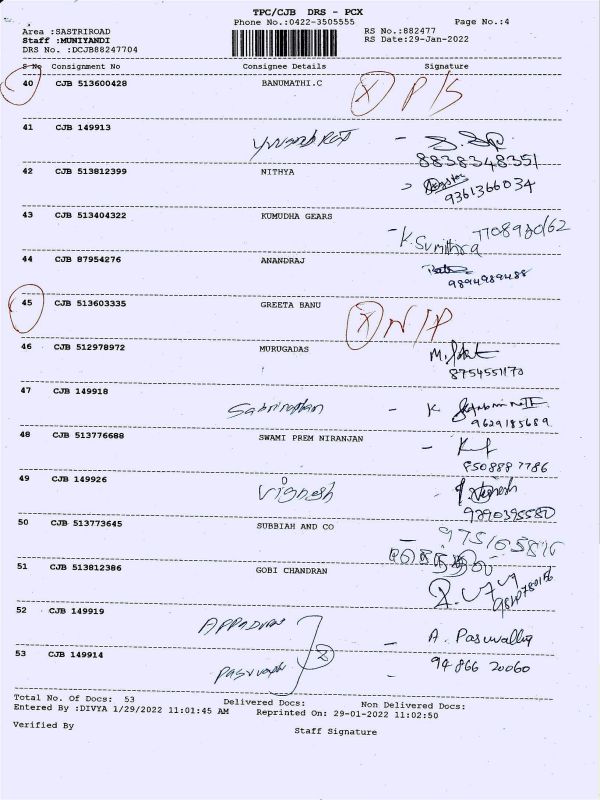 TPC/CJB DRS - PCX
Phone No.:0422-3505555 Page No.:4
Area :SASTRIROAD RS No.:882477
Staff :MUNIYANDI RS Date:29-Jan-2022
DRS No. :DCJB88247704
S No Consignment No Consignee Details Signature
40 CJB 513600428 BANUMATHI.C X P/S
41 CJB 149913
8838348351
42 CJB 513812399 NITHYA
9361366034
43 CJB 513404322 KUMUDHA GEARS
K. Sumithra 7708980162
44 CJB 87954276 ANANDRAJ
9894989488
45 CJB 513603335 GREETA BANU X N/P
46 CJB 512978972 MURUGADAS
8754551170
47 CJB 149918
9629185689
48 CJB 513776688 SWAMI PREM NIRANJAN
8508887786
49 CJB 149926 Vignesh
50 CJB 513773645 SUBBIAH AND CO
51 CJB 513812386 GOBI CHANDRAN
52 CJB 149919
53 CJB 149914 2
94 866 20060
Total No. Of Docs: 53 Delivered Docs: Non Delivered Docs:
Entered By :DIVYA 1/29/2022 11:01:45 AM Reprinted On: 29-01-2022 11:02:50
Verified By Staff Signature